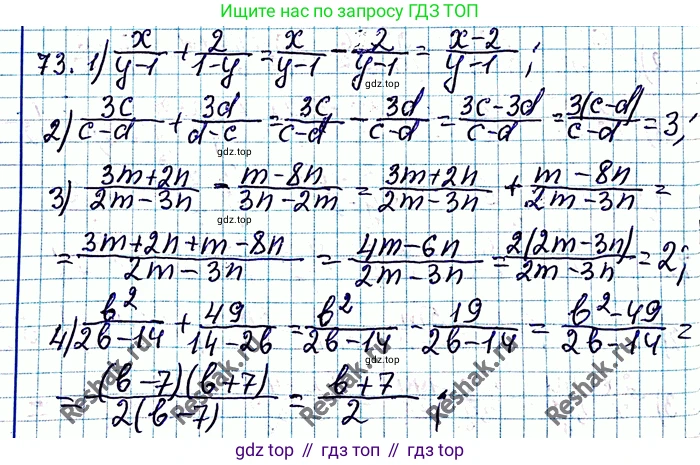 Ищите нас по запросу ГДЗ ТОП
73. 1) x/(y-1) + 2/(1-y) = x/(y-1) - 2/(y-1) = (x-2)/(y-1);
gdz.top
2) 3c/(c-d) + 3d/(d-c) = 3c/(c-d) - 3d/(c-d) = (3c-3d)/(c-d) = 3(c-d)/(c-d) = 3;
gdz.top gdz.top
3) (3m+2n)/(2m-3n) - (m-8n)/(3n-2m) = (3m+2n)/(2m-3n) + (m-8n)/(2m-3n) =
= (3m+2n+m-8n)/(2m-3n) = (4m-6n)/(2m-3n) = 2(2m-3n)/(2m-3n) = 2;
4) b²/(2b-14) + 49/(14-2b) = b²/(2b-14) - 19/(2b-14) = (b²-49)/(2b-14) =
gdz.top
= (b-7)(b+7)/2(b-7) = (b+7)/2;
Reshak.ru Reshak.ru Reshak.ru Reshak.ru Reshak.ru
gdz top // гдз топ // gdz.top